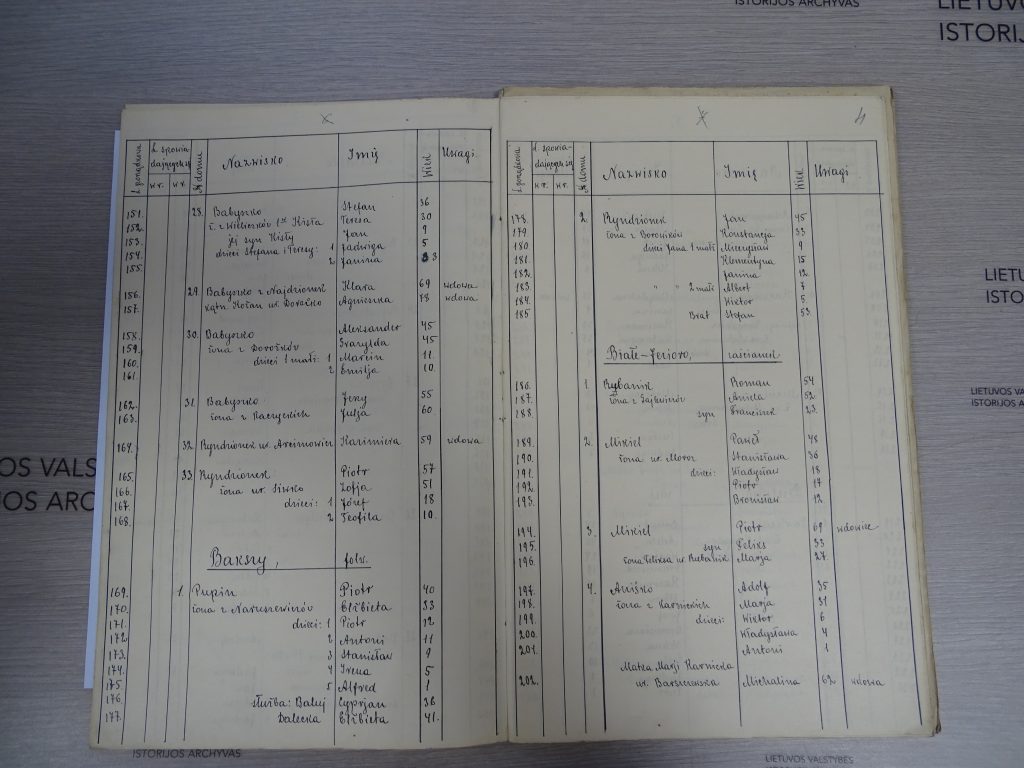 ISTORIJOS ARCHYVAS
LIETUVOS
ISTORIJOS
L. porządkowa
L. spowia-
dających się
№ domu
Nazwisko
Imię
Wiek
Uwagi
151. 28. Babyszko Stefan 36
152. Teresa 30
153. jej syn Kisły Jan 9
154. dzieci Stefana i Teresy: 1 Jadwiga 5
155. 2 Janina 3
156. 29. Babyszko z Najdzionek Klara 69 wdowa
157. Agnieszka 78 wdowa
158. 30. Babyszko Aleksander 45
159. żona z Doroźków 45
160. dzieci 1 małż: 1 Marcin 11.
161. 2 Emilja 10.
162. 31. Babyszko Jerzy 55
163. żona z Raczyckich Julja 60.
164. 32. Ryndzionek ur. Kazimiera 59 wdowa
165. 33. Ryndzionek Piotr 57
166. żona ur. Siwko Zofja 51
167. dzieci: 1 Józef 18
168. 2 Teofila 10.
Bakszy, folw.
169. 1. Pupin Piotr 40
170. żona z Naruszewiczów Elżbieta 33
171. dzieci: 1 Piotr 12
172. 2 Antoni 11
173. 3 Stanisław 9
174. 4 Irena 5
175. 5 Alfred 1
176. służba: Cyprjan 38
177. Dalecka Elżbieta 41.
4
L. porządkowa
L. spowia-
dających się
№ domu
Nazwisko
Imię
Wiek
Uwagi
178. 2. Ryndzionek Jan 45
179. żona z Borowików Konstancja 33
180 dzieci Jana 1 małż Mieczysław 9
181. Klementyna 15
182. Janina 12
183 " " 2 małż Albert 7
184. Wiktor 5
185 Brat Stefan 53
Białe-Jezioro, zaścianek
186. 1. Rybanik Roman 54
187. Aniela 52
188. syn Franciszek 23.
189. 2. Mikiel Paweł 48
190. żona ur. Moroz Stanisława 36
191. dzieci: Władysław 18
192. Piotr 17
193. Bronisław 12
194. 3. Mikiel Piotr 69 wdowiec
195. syn Feliks 33
196. żona Feliksa ur Rybanik Marja 27.
197. 4. Aniśko Adolf 35
198. żona z Karnickich Marja 31
199. dzieci: Wiktor 6
200. Władysława 4
201. Antoni 1
Matka Marji Karnicka
202. ur. Barszczewska Michalina 62 wdowa
LIETU
ISTO
LIETUVOS VALS
ISTORIJOS ARCHY
VOS VALS
JOS ARC
ISTORIJOS ARCHYVAS
LIETUVOS VALSTYBĖS